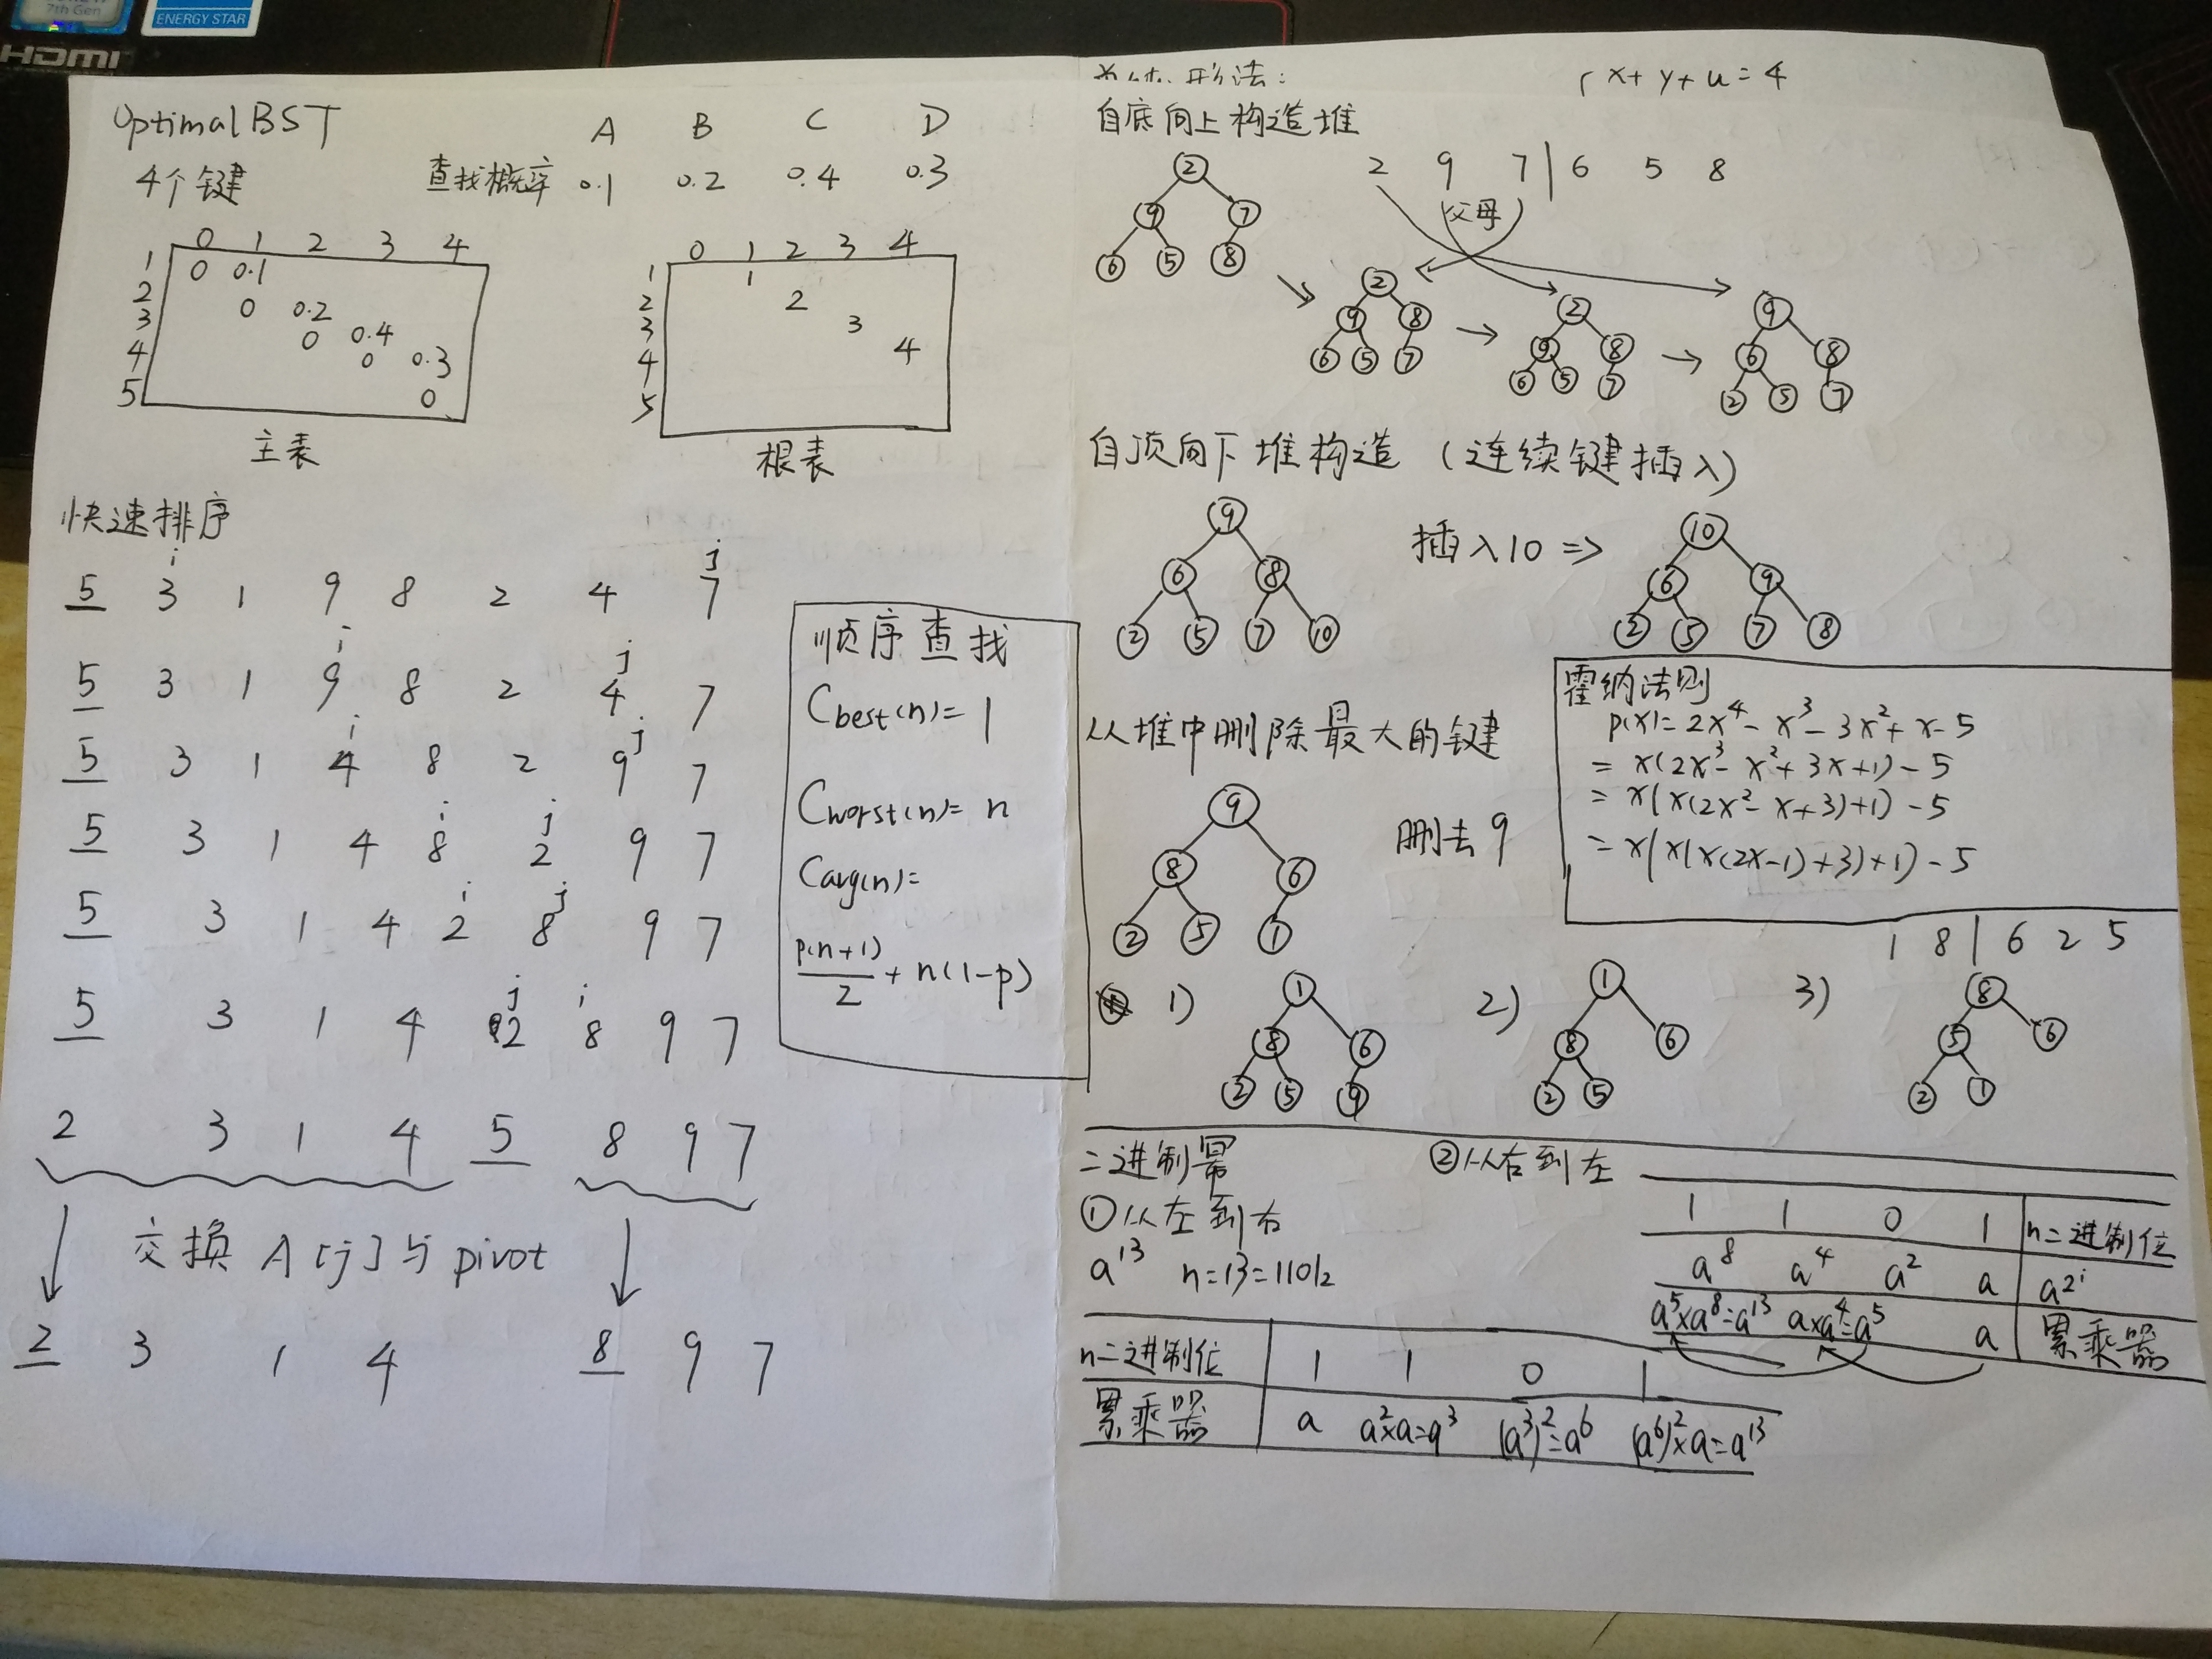 7th Gen
ENERGY STAR
HDMI
Optimal BST
A B C D
4个键 查找概率 0.1 0.2 0.4 0.3
0 1 2 3 4
1 0 0.1
2 0 0.2
3 0 0.4
4 0 0.3
5 0
主表
0 1 2 3 4
1 1
2 2
3 3
4 4
5
根表
快速排序
i j
5 3 1 9 8 2 4 7
i j
5 3 1 9 8 2 4 7
i j
5 3 1 4 8 2 9 7
i j
5 3 1 4 8 2 9 7
i j
5 3 1 4 2 8 9 7
j i
5 3 1 4 2 8 9 7
2 3 1 4 5 8 9 7
交换 A[j]与 pivot
2 3 1 4 8 9 7
顺序查找
Cbest(n)= 1
Cworst(n)= n
Cavg(n)=
p(n+1)/2 + n(1-p)
形法:
x+y+u=4
自底向上构造堆
2 9 7 | 6 5 8
父母
2
9 7
6 5 8
2
9 8
6 5 7
2
9 8
6 5 7
9
6 8
2 5 7
自顶向下堆构造 (连续键插入)
9
6 8
2 5 7 10
插入10 =>
10
6 9
2 5 7 8
霍纳法则
p(x)=2x⁴-x³-3x²+x-5
= x(2x³-x²+3x+1)-5
= x(x(2x²-x+3)+1)-5
= x(x(x(2x-1)+3)+1)-5
从堆中删除最大的键
9
8 6
2 5 1
删去9
1 8 | 6 2 5
1)
1
8 6
2 5 9
2)
1
8 6
2 5
3)
8
5 6
2 1
二进制幂
①从左到右
a¹³ n=13=1101₂
n二进制位 1 1 0 1
累乘器 a a²×a=a³ (a³)²=a⁶ (a⁶)²×a=a¹³
②从右到左
1 1 0 1 n二进制位
a⁸ a⁴ a² a a²ⁱ
a⁵×a⁸=a¹³ a×a⁴=a⁵ a 累乘器